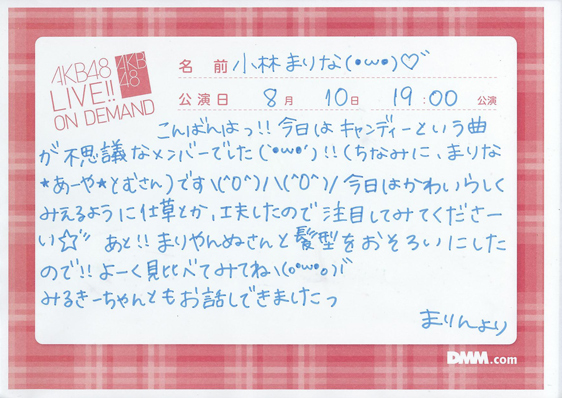 AKB48
LIVE!!
ON DEMAND
AKB
48
名 前 小林まりな(•ω•)♡
公演日 8月 10日 19:00 公演
こんばんはっ!!今日はキャンディーという曲
が不思議なメンバーでした(•ω•)!!(ちなみに、まりな
★あーや★とむさん)です\(^O^)/\(^O^)/今日はかわいらしく
みえるように仕草とか、工夫したので注目してみてくださー
い☆ あと!!まりやんぬさんと髪型をおそろいにした
ので!!よーく見比べてみてね\(o•ω•o)
みるきーちゃんともお話しできましたっ
まりんより
DMM.com